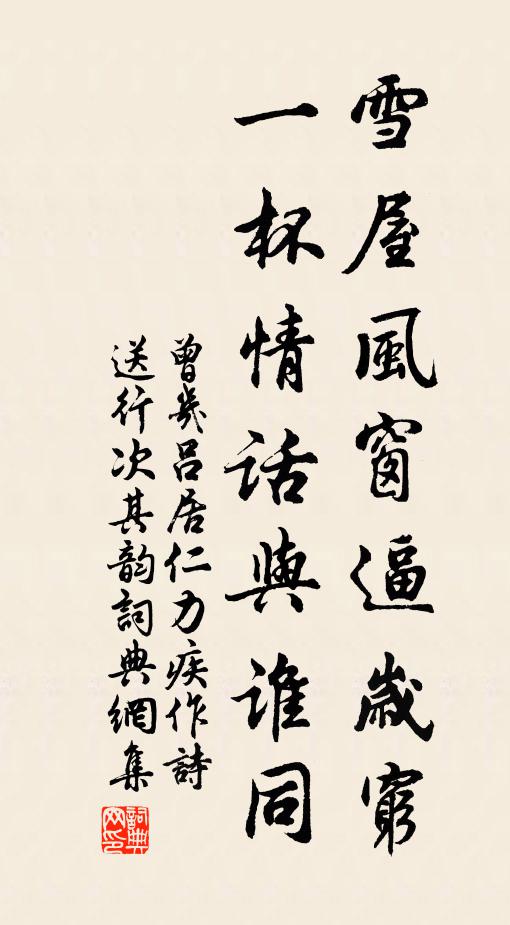 雪屋風窗逼歲窮
一杯情話與誰同
曾幾呂居仁力疾作詩
送行次其韵詞典網集
詞典
网印